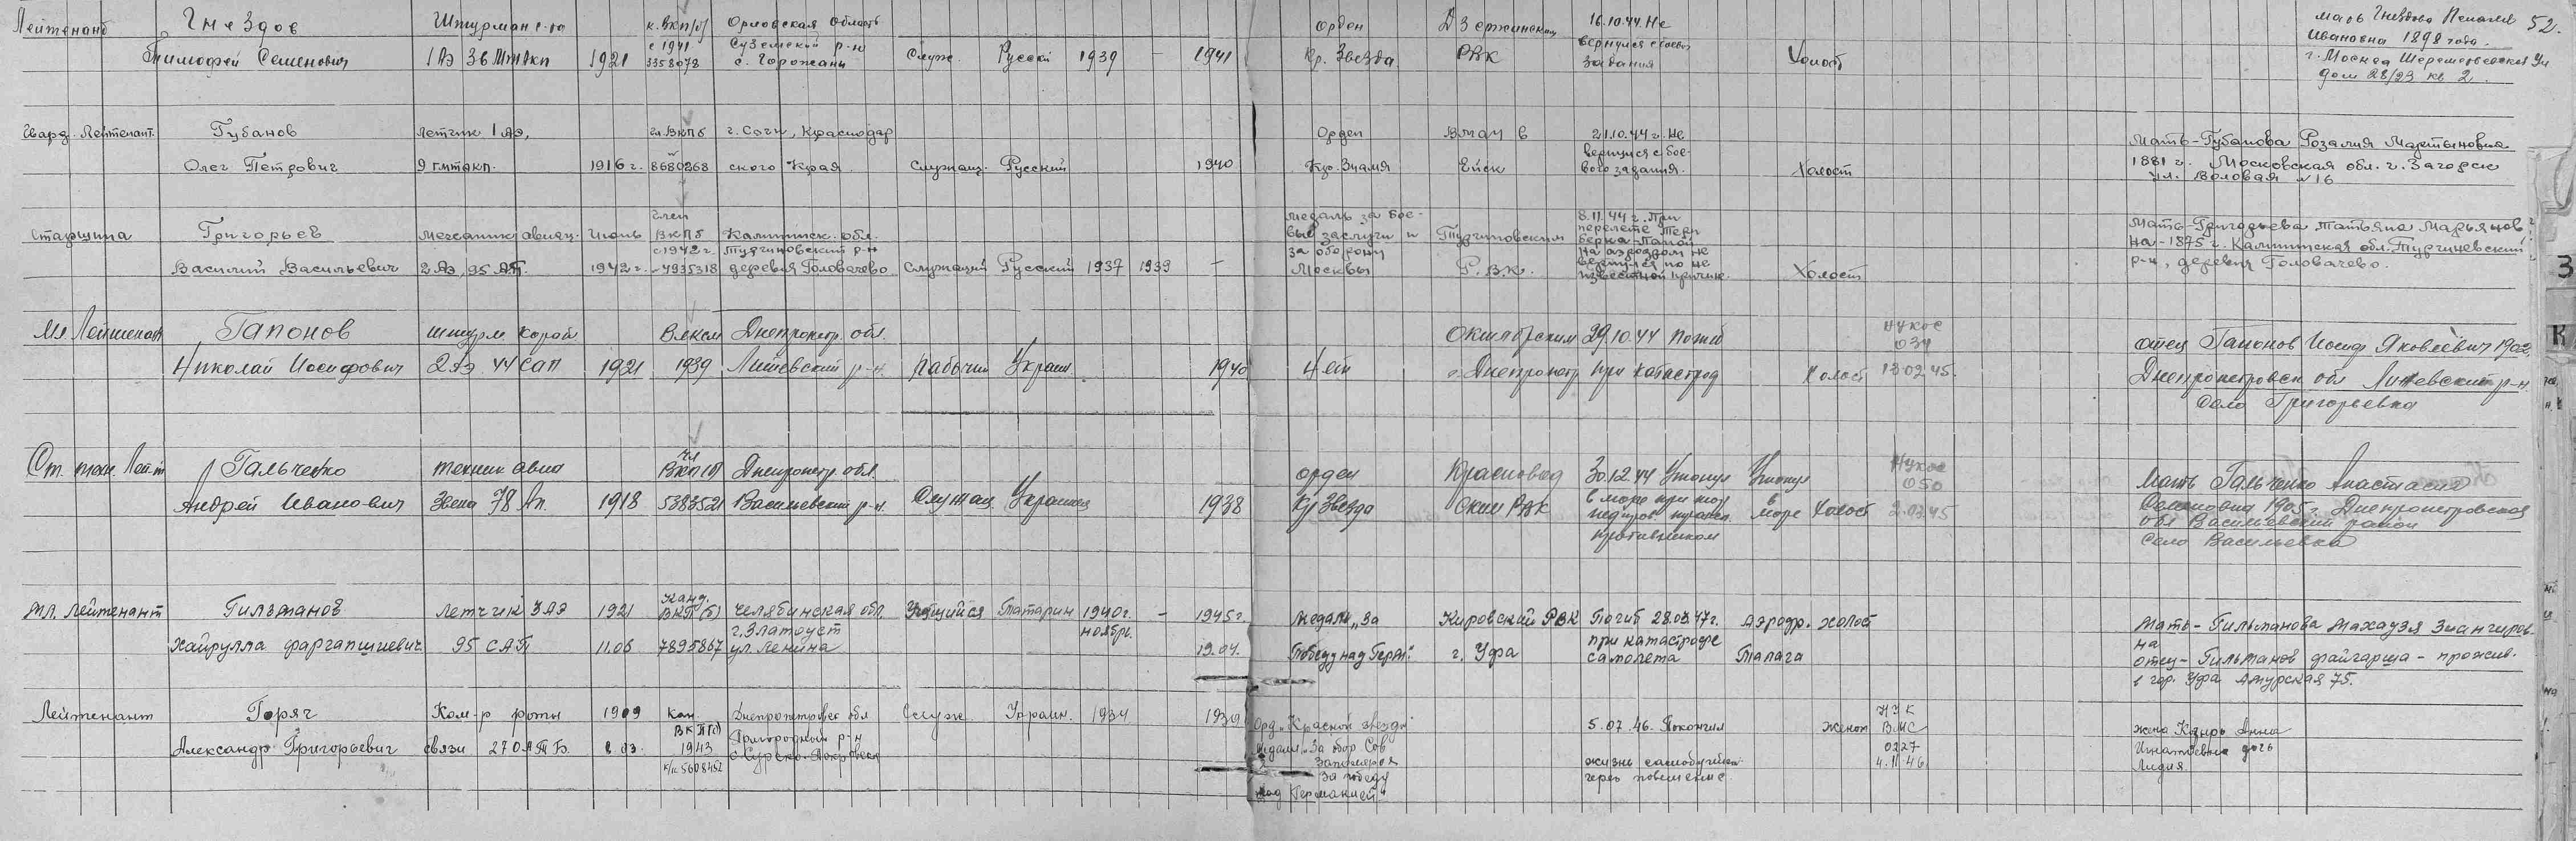 Лейтенант Гнездов Штурман к. ВКП/б/ Орловская область орден Дзержинским 16.10.44. Не мать Гнездова Пелагея 52.
с 1941 Суземский р-н вернулся с боев. Ивановна 1898 года
Тимофей Семенович 1 АЭ 36 МТАП 1921 3358078 с. Горожань Служ. Русский 1939 – 1941 Кр. Звезда РВК задания Холост г. Москва Шереметьевская ул
дом 28/23 кв 2.
Гвард. Лейтенант. Губанов Летчик 1 АЭ, чл. ВКПб г. Сочи, Краснодар Орден ВМАУ в 21.10.44 г. Не Мать-Губанова Розалия Мартыновна
Олег Петрович 9 гмтакп. 1916 г. 8680268 ского Края Служащ. Русский 1940 Кр. Знамя Ейск вернулся с бое- Холост 1881 г. Московская обл. г. Загорск
вого задания. ул. Воловая №16
член Медаль за бое- 8.11.44 г. При
Старшина Григорьев Механик авиац. Июнь ВКПб Калининск. обл. вые заслуги и Тургиновским перелете Мать-Григорьева Татьяна Марьянов
с 1942 г. Тургиновский р-н за оборону на аэродром не на-1875 г. Калининская обл. Тургиневский
Василий Васильевич 2 АЭ, 95 АП. 1942 г. 4935318 деревня Головачево Служащий Русский 1937 1939 – Москвы Р.В.К. вернулся по не Холост р-н, деревня Головачево
известной причине.
Мл. Лейтенант Гапонов штурм. кораб. Влксм Днепропетр. обл. Октябрьским 29.10.44 Погиб НУКОС отец Гапонов Иосиф Яковлевич 1902
034
Николай Иосифович 2 АЭ 44 САП 1921 1939 Лишевский р-н. рабочий Украин. 1940 Нет г. Днепропетр при катастроф Холост 13.02.45. Днепропетровск обл Лишевский р-н.
Село Григорьевка
Ст. техн. Лей-т Гальченко техник авиа чл ВКП(б) Днепропетр. обл. орден Красногвод 30.12.44 Утонул Утонул НУКОС Мать Гальченко Анастасия
050
Андрей Иванович Звена 78 Ап. 1918 5383521 Васильевский р-н. Служащ. Украинец 1938 Кр Звезда Окт РВК в море при тор в море Холост 2.03.45 Семеновна 1905 г. Днепропетровская
педиров. трансп. обл Васильевский район
противником Село Васильевка
Мл. Лейтенант Гильманов Летчик 3 АЭ 1921 Канд. ВКП(б) Челябинская обл. Учащийся Татарин 1940 г. – 1945 г. Медаль „За Кировский РВК Погиб 28.03.47 г. Аэродр. холост Мать – Гильманова Махаузя Зиангиров-
г. Златоуст ноябрь. при катастрофе на
Хайрулла Фаргапшиевич. 95 САП 11.06 7895867 ул. Ленина 19.04. Победу над Герм." г. Уфа самолета Талага отец – Гильманов Файгарша – прожив.
в гор. Уфа Амурская 75.
Лейтенант Горяч Ком-р роты 1909 Кан. Днепропетровск обл Служ. Украин. 1931 1939 Орд. „Красной звезды" 5.07.46. Покончил женат НУК жена Коцырь Анна
ВКП(б) Пригородный р-н ВМС
Александр Григорьевич связи 27 ОАТБ. 8.03. 1943 с. Сурско-Покровское Медали „За обор Сов 0227 Игнатьевна дочь
к/к 5608452 Заполярья жизнь самоубийст 4.11.46 Лидия.
За победу через повешение
над Германией"